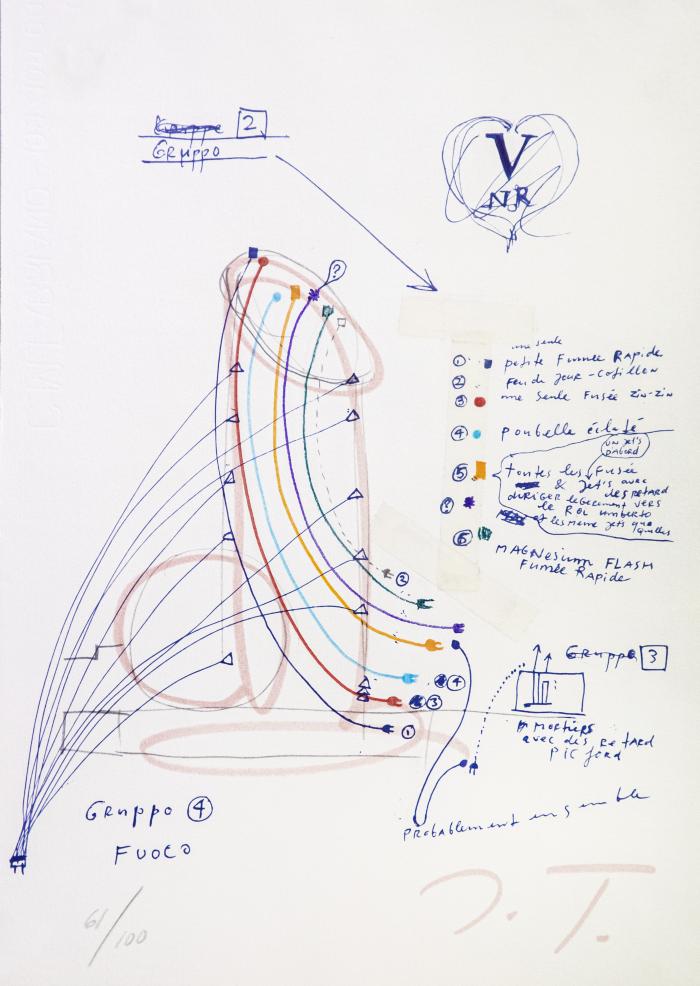 2
Gruppo
V
NR
?
une seule
① petite Fumée Rapide
② feu de jour - Cotillon
③ une seule Fusée Zin-Zin
④ poubelle éclaté
UN JET'S
D'ABORD
⑤ toutes les Fusée
& Jet's avec
des retard
diRiGER legerement vers
le Roi umberto
et les meme jets que
⑥ MAGNesium FLASH
Fumée Rapide
②
④
③
①
Gruppo 3
MORTIERS
avec des Retard
Probablement ensemble
Gruppo ④
FUOCO
61/100
J. T.